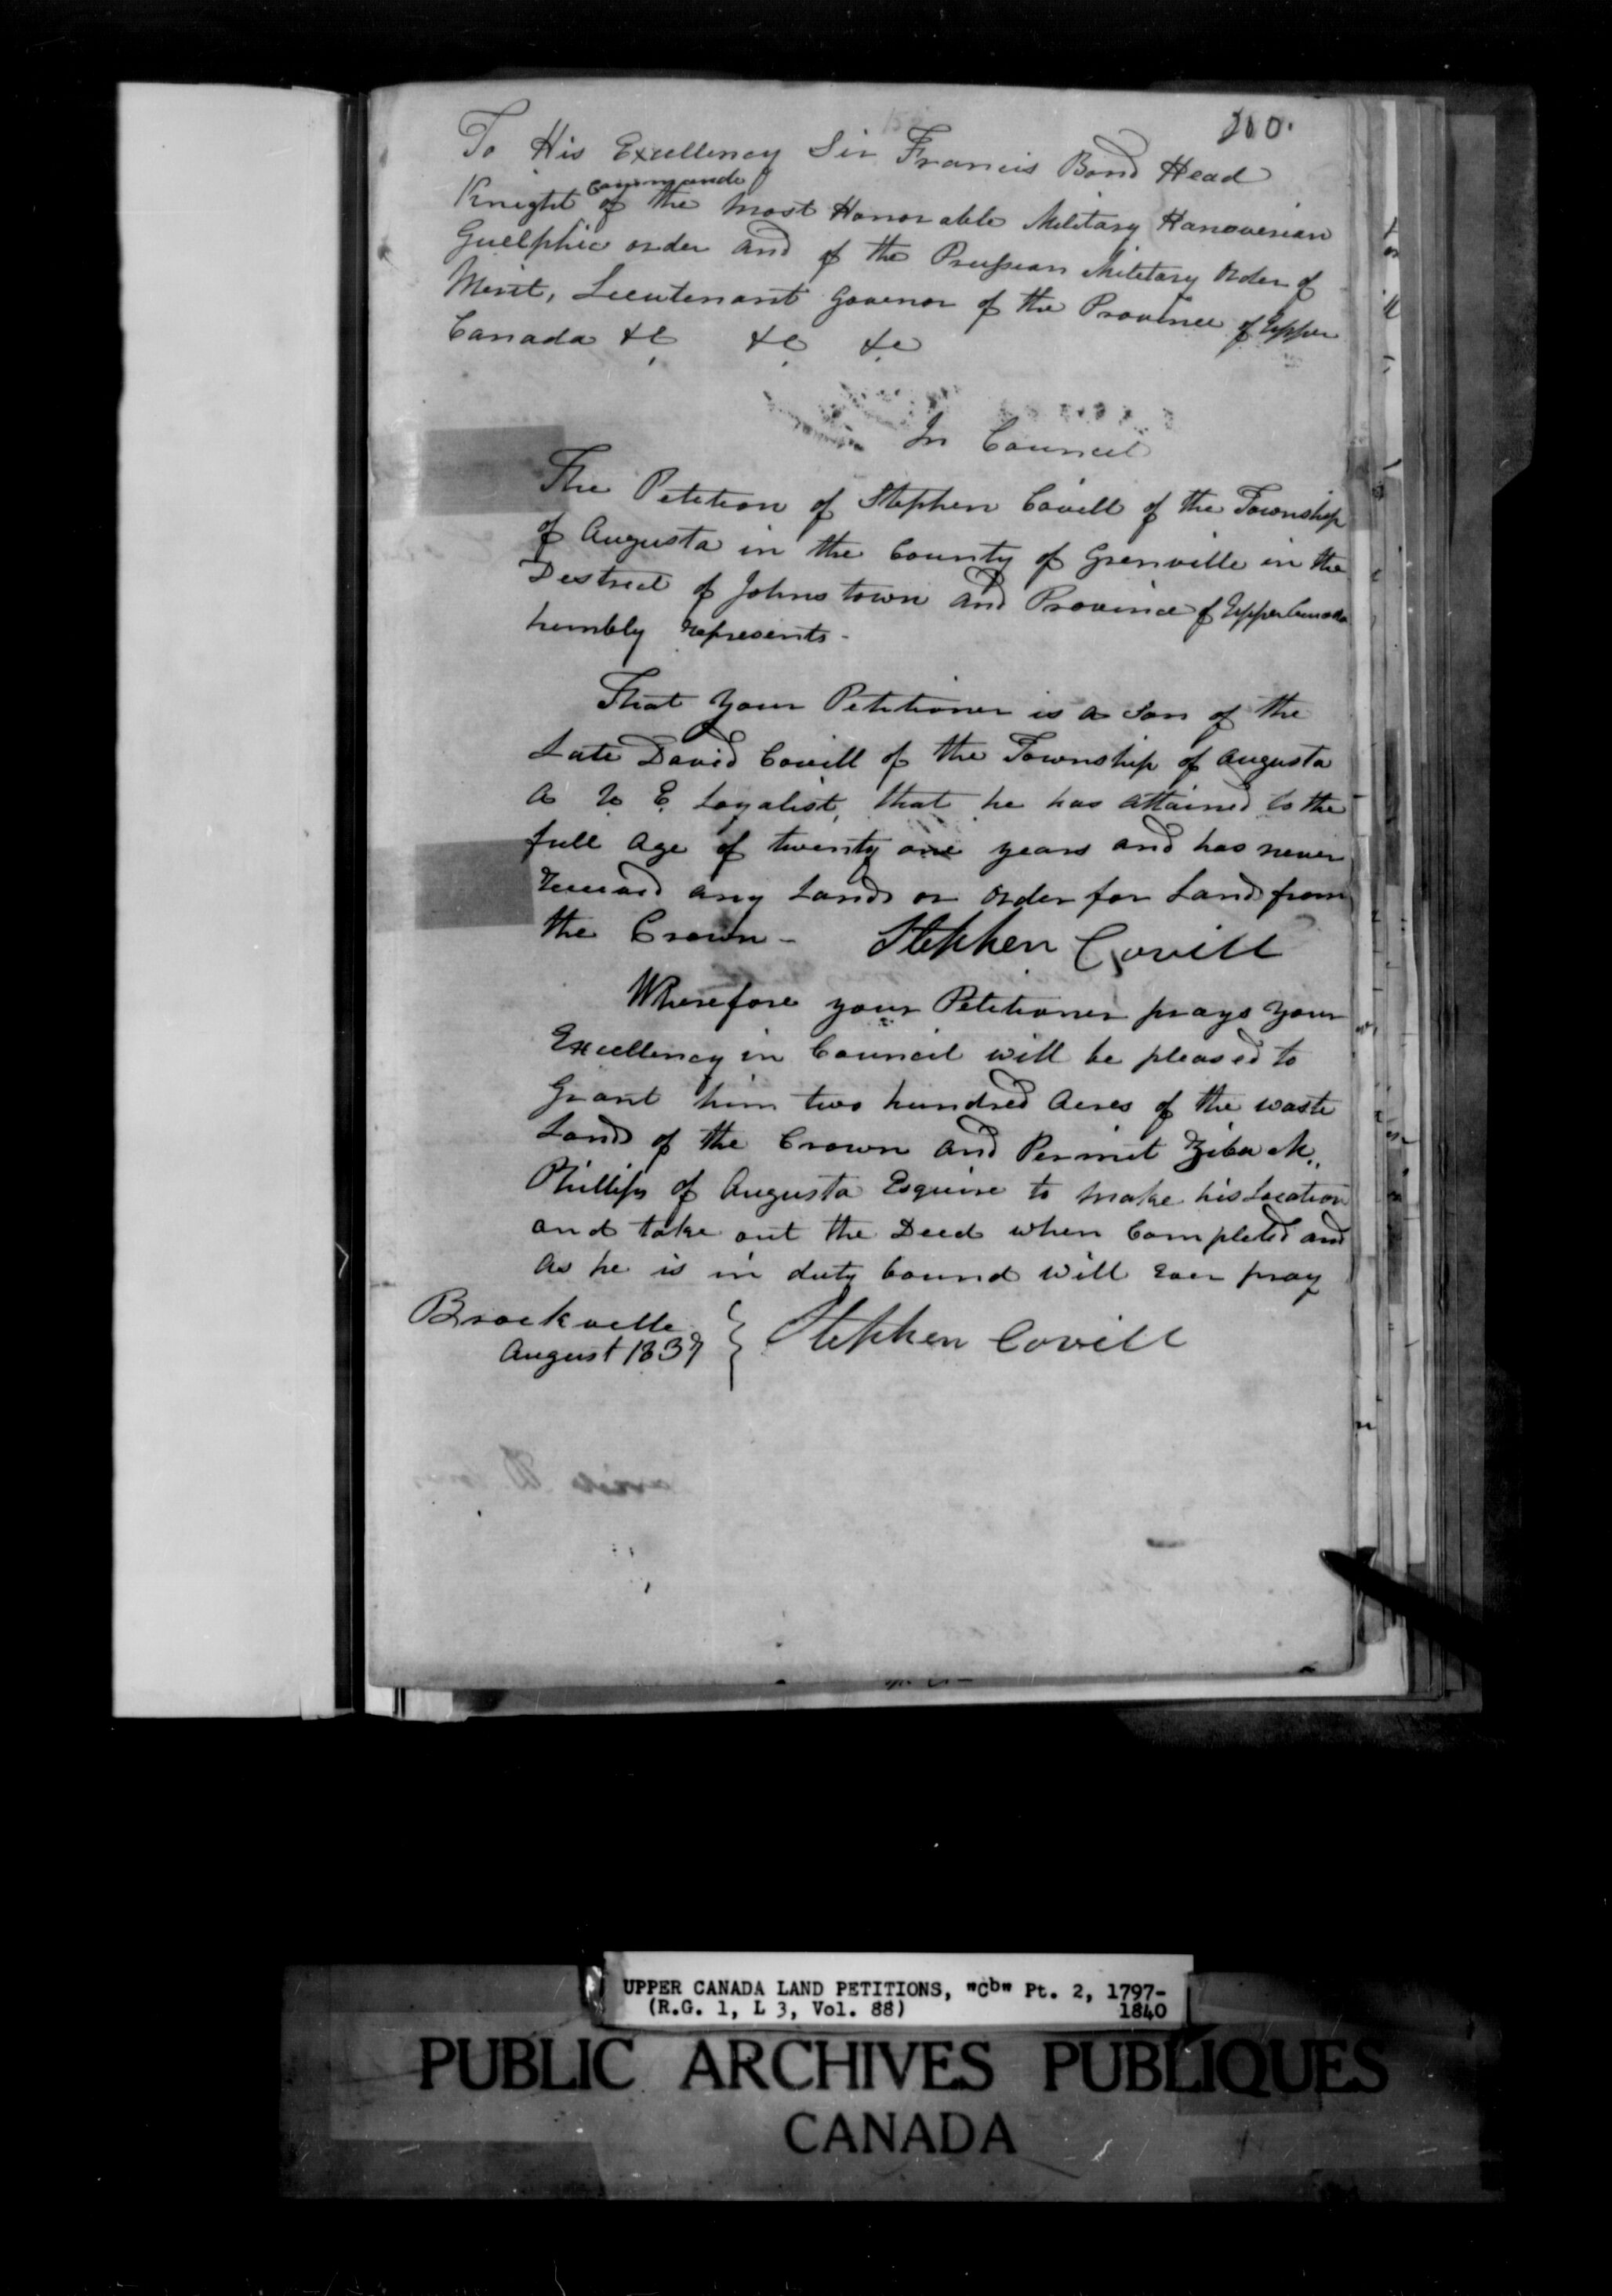 200.
To His Excellency Sir Francis Bond Head
Knight commander of the most Honorable Military Hanoverian
Guelphic order and of the Prussian Military Order of
Merit, Lieutenant Govenor of the Province of Upper
Canada &c &c &c
In Council
The Petition of Stephen Covill of the Township
of Augusta in the County of Grenville in the
District of Johnstown and Province of Upper Canada
humbly represents -
That your Petitioner is a Son of the
Late David Covill of the Township of Augusta
a U E Loyalist, that he has attained to the
full age of twenty one years and has never
received any Lands or order for Land from
the Crown - Stephen Covill
Wherefore your Petitioner prays your
Excellency in Council will be pleased to
Grant him two hundred Acres of the waste
Lands of the Crown and Permit Ziba M.
Phillips of Augusta Esquire to make his Location
and take out the Deed when Completed and
as he is in duty bound will ever pray
Brockville
August 1837 } Stephen Covill
UPPER CANADA LAND PETITIONS, "Cb" Pt. 2, 1797-
(R.G. 1, L 3, Vol. 88) 1840
PUBLIC ARCHIVES PUBLIQUES
CANADA